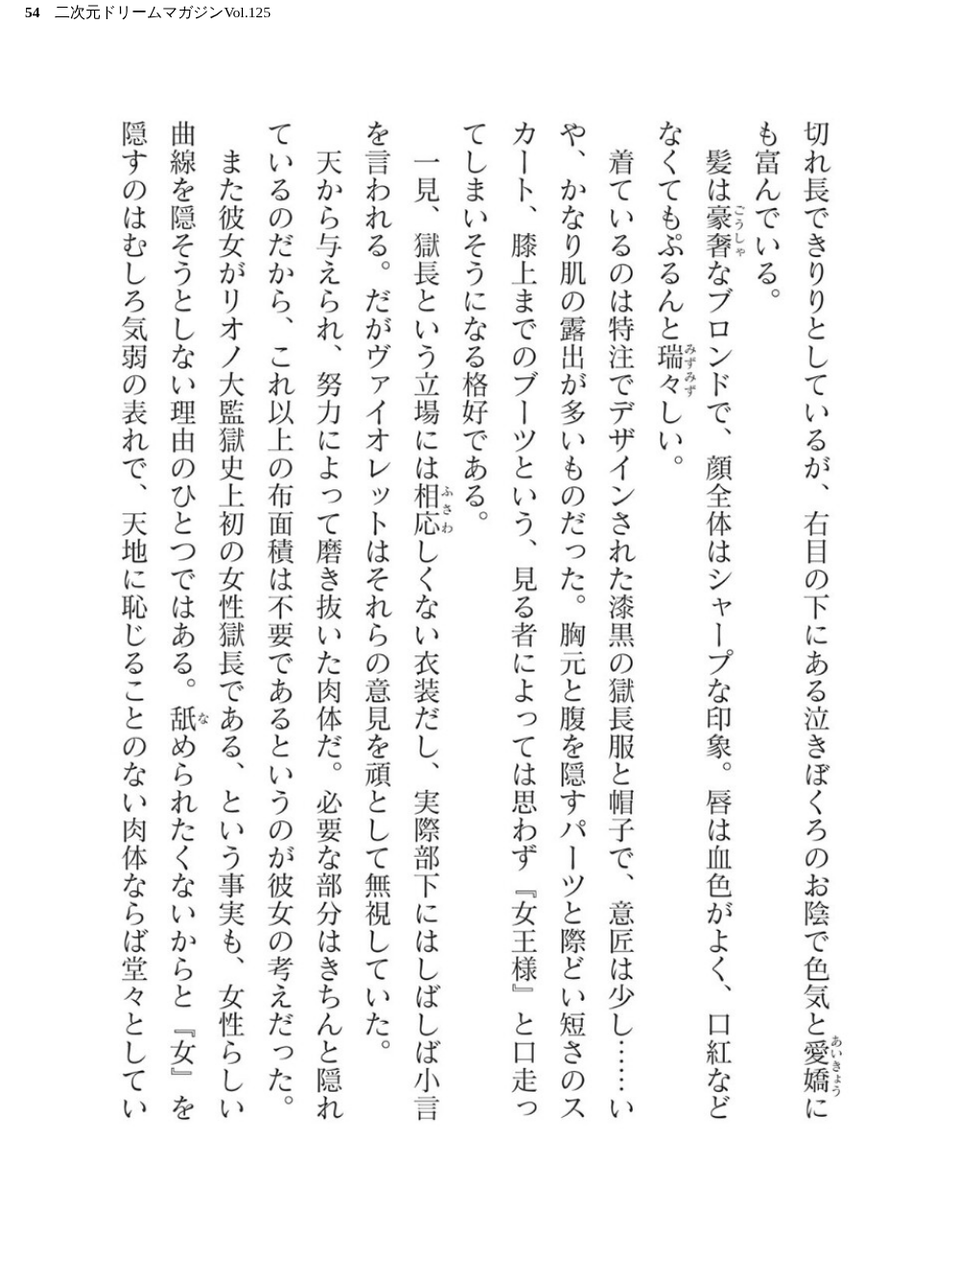 54 二次元ドリームマガジンVol.125
切れ長できりりとしているが、右目の下にある泣きぼくろのお陰で色気と愛嬌に
も富んでいる。
髪は豪奢なブロンドで、顔全体はシャープな印象。唇は血色がよく、口紅など
なくてもぷるんと瑞々しい。
着ているのは特注でデザインされた漆黒の獄長服と帽子で、意匠は少し……い
や、かなり肌の露出が多いものだった。胸元と腹を隠すパーツと際どい短さのス
カート、膝上までのブーツという、見る者によっては思わず『女王様』と口走っ
てしまいそうになる格好である。
一見、獄長という立場には相応しくない衣装だし、実際部下にはしばしば小言
を言われる。だがヴァイオレットはそれらの意見を頑として無視していた。
天から与えられ、努力によって磨き抜いた肉体だ。必要な部分はきちんと隠れ
ているのだから、これ以上の布面積は不要であるというのが彼女の考えだった。
また彼女がリオノ大監獄史上初の女性獄長である、という事実も、女性らしい
曲線を隠そうとしない理由のひとつではある。舐められたくないからと『女』を
隠すのはむしろ気弱の表れで、天地に恥じることのない肉体ならば堂々としてい